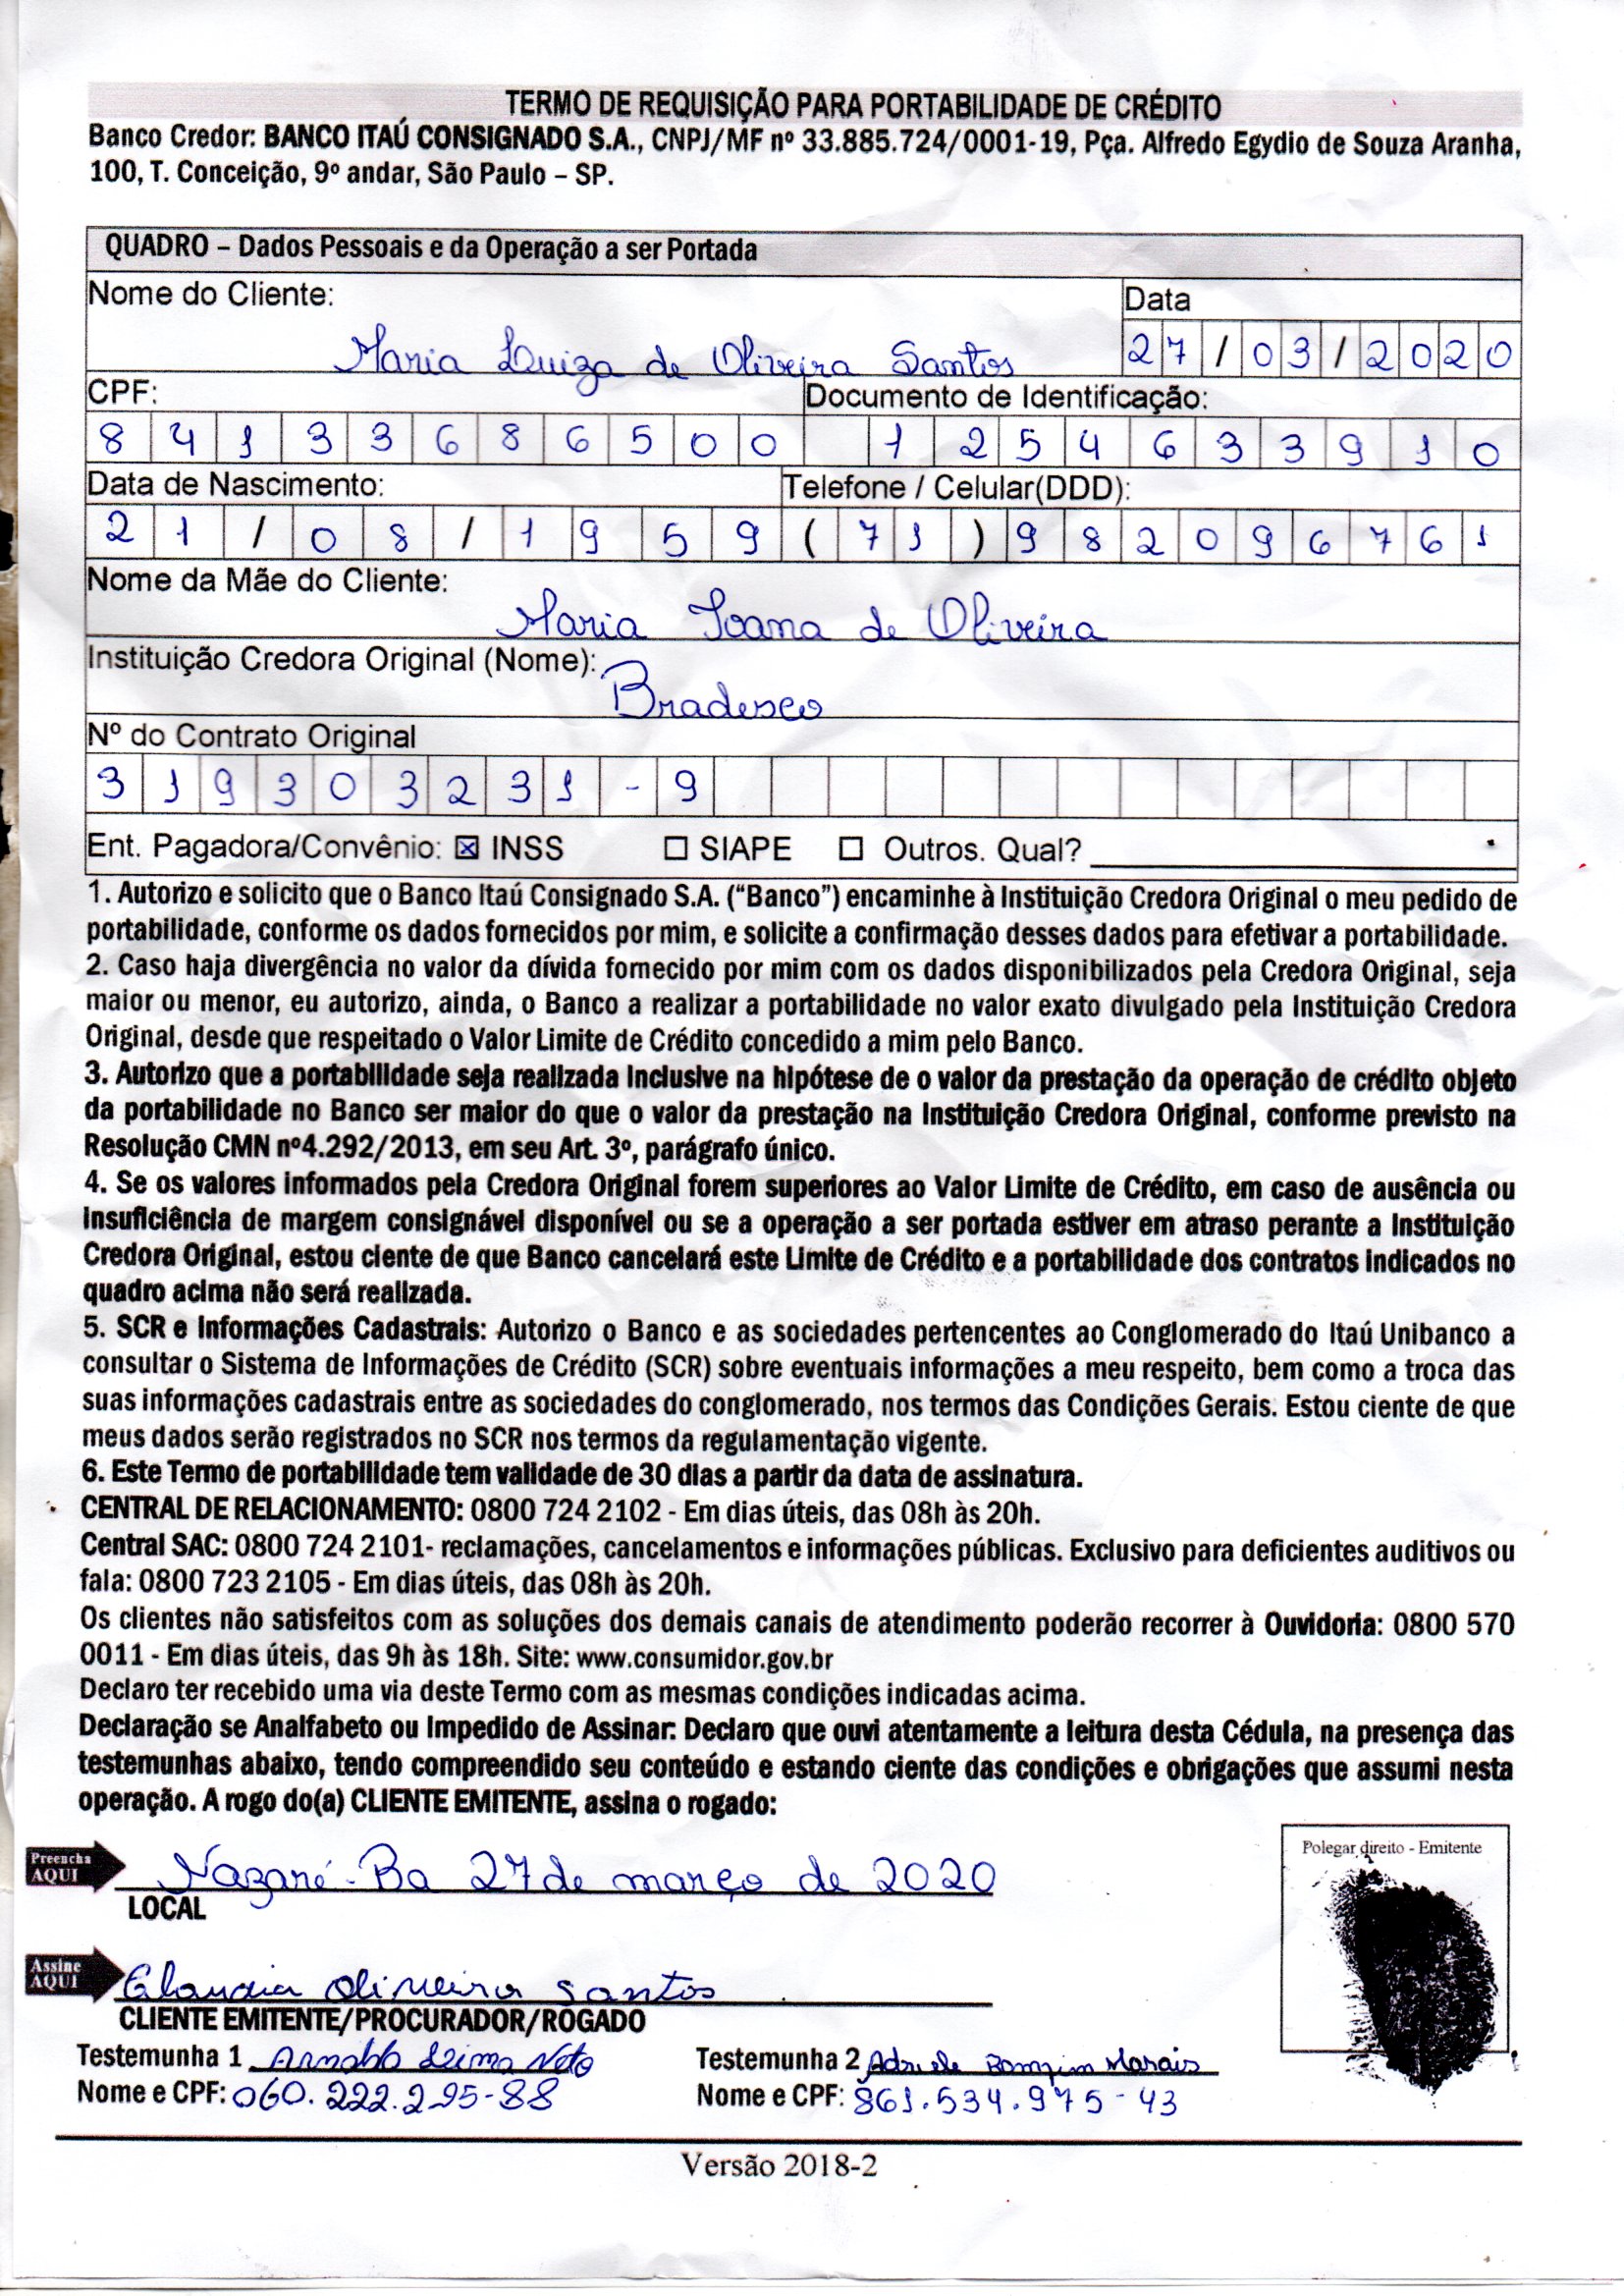 TERMO DE REQUISIÇÃO PARA PORTABILIDADE DE CRÉDITO
Banco Credor: BANCO ITAÚ CONSIGNADO S.A., CNPJ/MF nº 33.885.724/0001-19, Pça. Alfredo Egydio de Souza Aranha,
100, T. Conceição, 9º andar, São Paulo – SP.
QUADRO – Dados Pessoais e da Operação a ser Portada
Nome do Cliente: Data
Maria Luiza de Oliveira Santos 27/03/2020
CPF: Documento de Identificação:
84133686500 1254633910
Data de Nascimento: Telefone / Celular(DDD):
21/08/1959 (71)982096761
Nome da Mãe do Cliente:
Maria Joana de Oliveira
Instituição Credora Original (Nome):
Bradesco
Nº do Contrato Original
319303231-9
Ent. Pagadora/Convênio: ☒ INSS ☐ SIAPE ☐ Outros. Qual?
1. Autorizo e solicito que o Banco Itaú Consignado S.A. (“Banco”) encaminhe à Instituição Credora Original o meu pedido de
portabilidade, conforme os dados fornecidos por mim, e solicite a confirmação desses dados para efetivar a portabilidade.
2. Caso haja divergência no valor da dívida fornecido por mim com os dados disponibilizados pela Credora Original, seja
maior ou menor, eu autorizo, ainda, o Banco a realizar a portabilidade no valor exato divulgado pela Instituição Credora
Original, desde que respeitado o Valor Limite de Crédito concedido a mim pelo Banco.
3. Autorizo que a portabilidade seja realizada inclusive na hipótese de o valor da prestação da operação de crédito objeto
da portabilidade no Banco ser maior do que o valor da prestação na Instituição Credora Original, conforme previsto na
Resolução CMN nº4.292/2013, em seu Art. 3º, parágrafo único.
4. Se os valores informados pela Credora Original forem superiores ao Valor Limite de Crédito, em caso de ausência ou
insuficiência de margem consignável disponível ou se a operação a ser portada estiver em atraso perante a Instituição
Credora Original, estou ciente de que Banco cancelará este Limite de Crédito e a portabilidade dos contratos indicados no
quadro acima não será realizada.
5. SCR e Informações Cadastrais: Autorizo o Banco e as sociedades pertencentes ao Conglomerado do Itaú Unibanco a
consultar o Sistema de Informações de Crédito (SCR) sobre eventuais informações a meu respeito, bem como a troca das
suas informações cadastrais entre as sociedades do conglomerado, nos termos das Condições Gerais. Estou ciente de que
meus dados serão registrados no SCR nos termos da regulamentação vigente.
6. Este Termo de portabilidade tem validade de 30 dias a partir da data de assinatura.
CENTRAL DE RELACIONAMENTO: 0800 724 2102 - Em dias úteis, das 08h às 20h.
Central SAC: 0800 724 2101- reclamações, cancelamentos e informações públicas. Exclusivo para deficientes auditivos ou
fala: 0800 723 2105 - Em dias úteis, das 08h às 20h.
Os clientes não satisfeitos com as soluções dos demais canais de atendimento poderão recorrer à Ouvidoria: 0800 570
0011 - Em dias úteis, das 9h às 18h. Site: www.consumidor.gov.br
Declaro ter recebido uma via deste Termo com as mesmas condições indicadas acima.
Declaração se Analfabeto ou Impedido de Assinar: Declaro que ouvi atentamente a leitura desta Cédula, na presença das
testemunhas abaixo, tendo compreendido seu conteúdo e estando ciente das condições e obrigações que assumi nesta
operação. A rogo do(a) CLIENTE EMITENTE, assina o rogado:
Polegar direito - Emitente
Preencha
AQUI
Nazaré-Ba 27 de março de 2020
LOCAL
Assine
AQUI
Claudia Oliveira Santos
CLIENTE EMITENTE/PROCURADOR/ROGADO
Testemunha 1 Arnaldo Neto Testemunha 2
Nome e CPF: 060.222.295-88 Nome e CPF: 861.534.975-43
Versão 2018-2